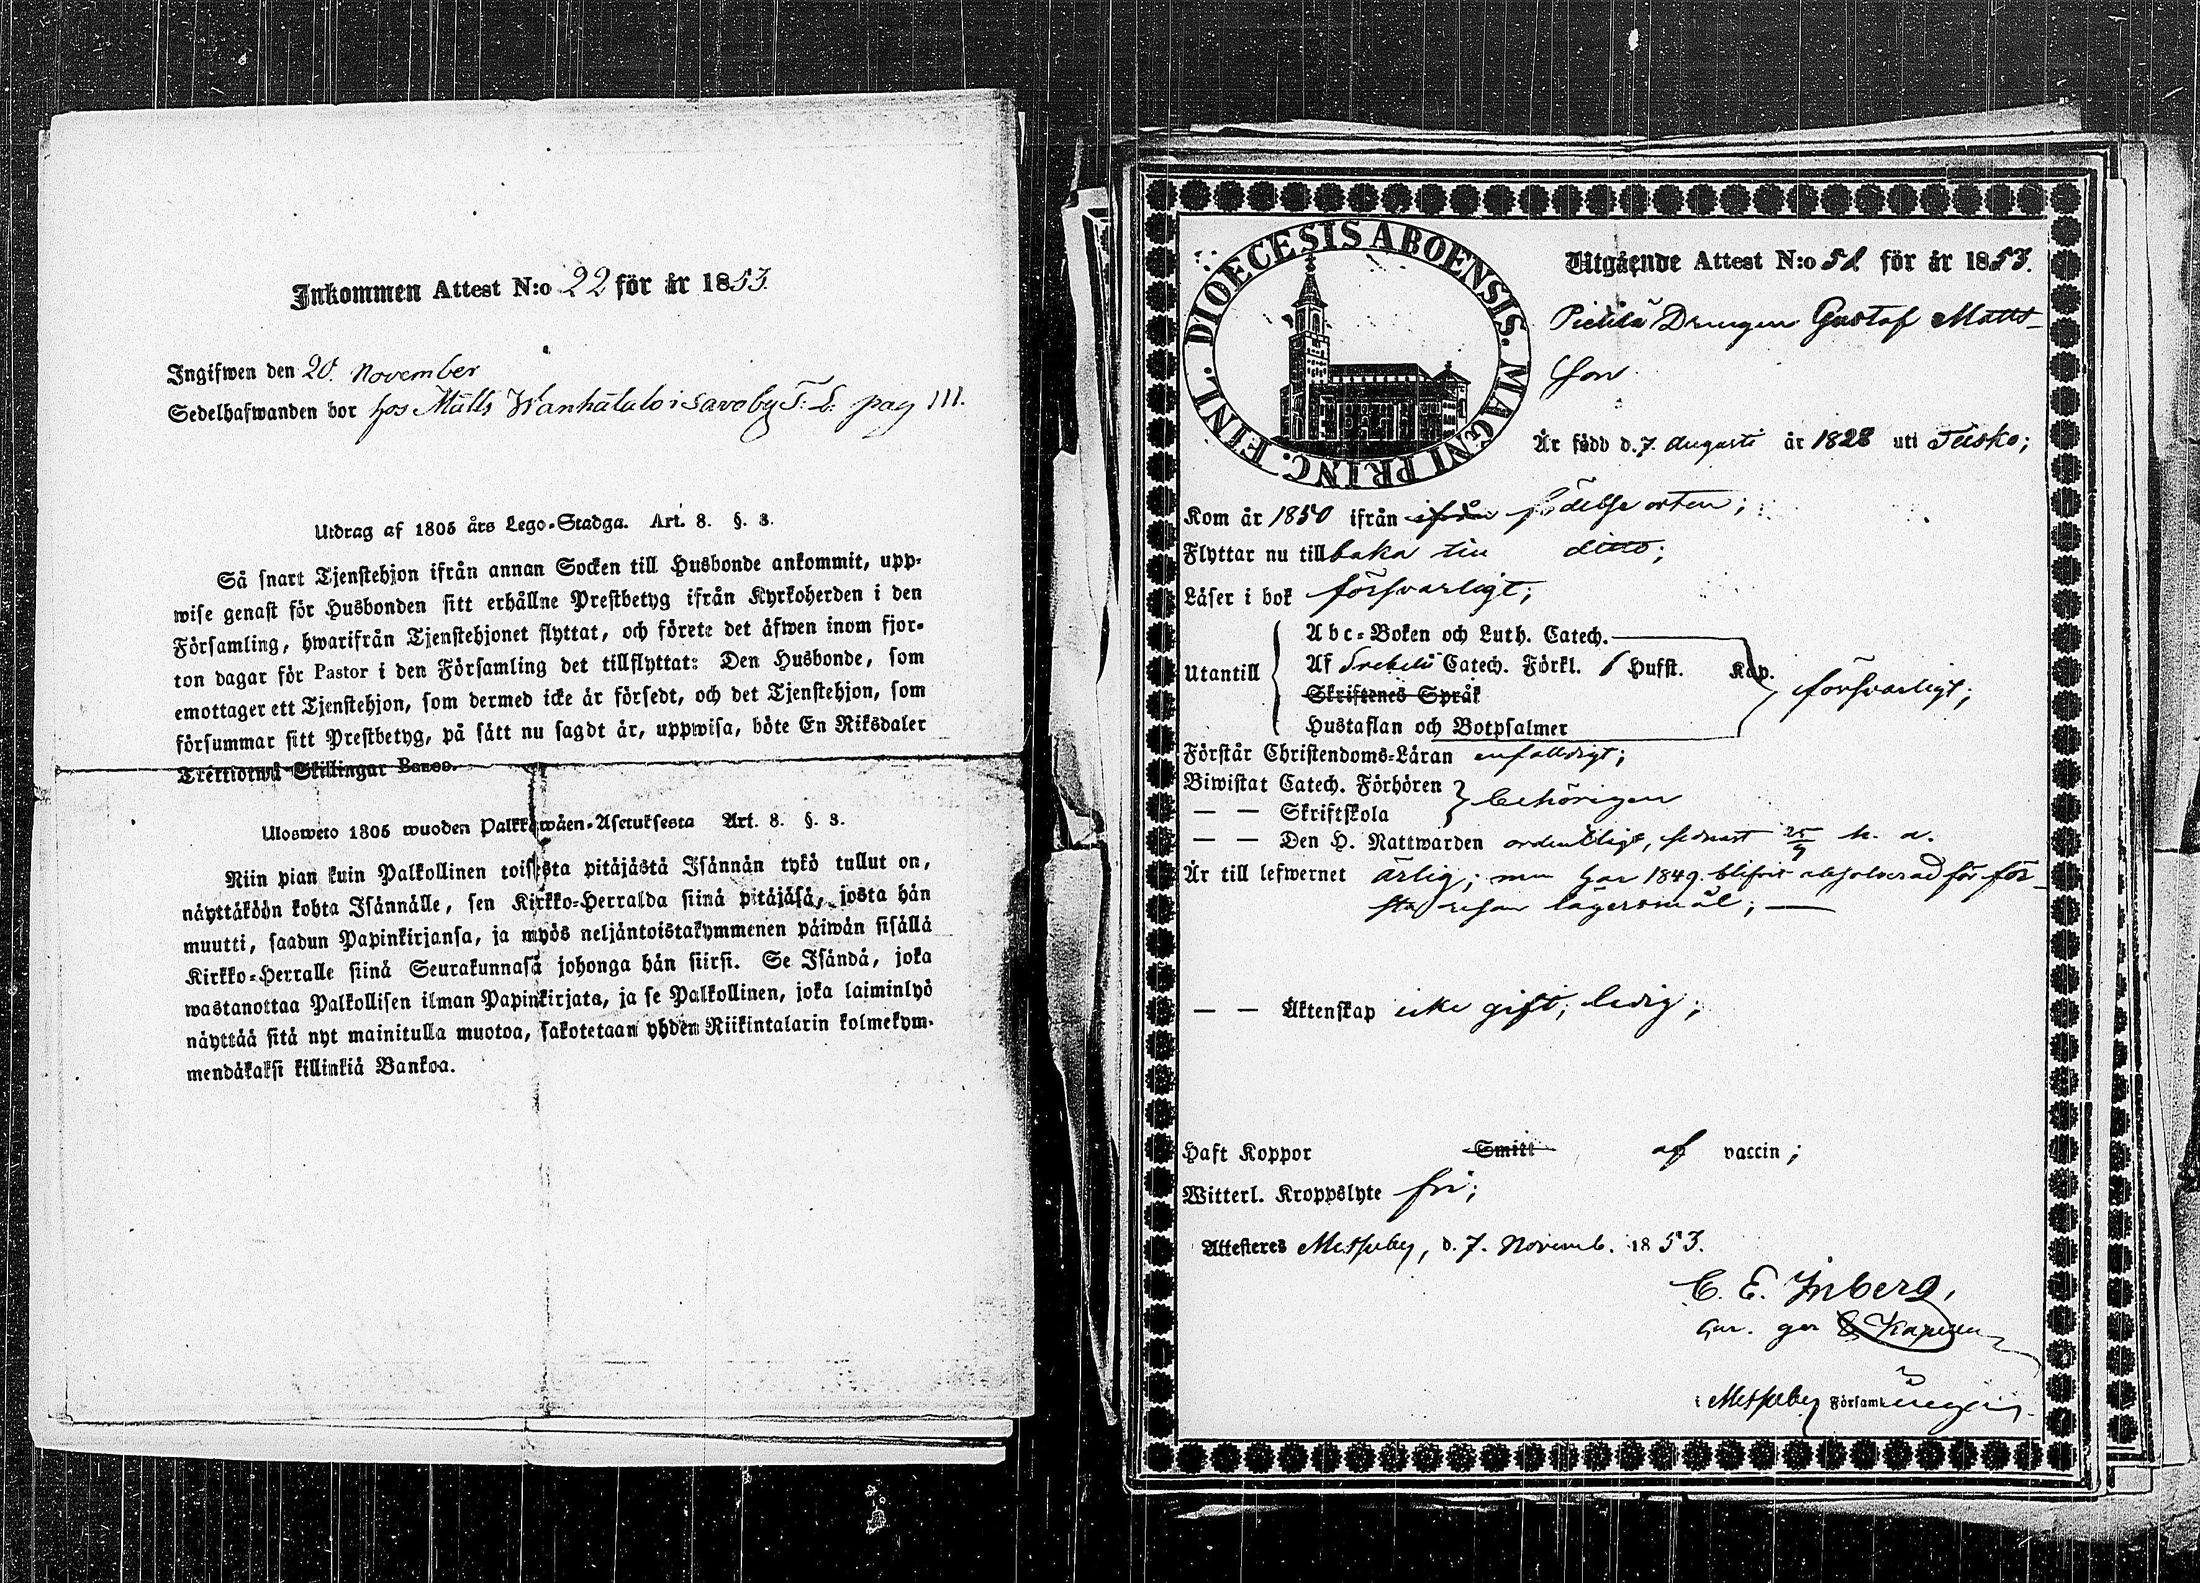 Inkommen Attest N:o 22 för år 1853.
Ingifwen den 20. November
Sedelhafwanden bor hos Matts Wanhatalo i Savoby T. L. pag 111.
Utdrag af 1805 års Lego-Stadga. Art. 8. §. 3.
Så snart Tjenstehjon ifrån annan Socken till Husbonde ankommit, upp-
wise genast för Husbonden sitt erhållne Prestbetyg ifrån Kyrkoherden i den
Församling, hwarifrån Tjenstehjonet flyttat, och förete det äfwen inom fjor-
ton dagar för Pastor i den Församling det tillflyttat: Den Husbonde, som
emottager ett Tjenstehjon, som dermed icke är försedt, och det Tjenstehjon, som
försummar sitt Prestbetyg, på sätt nu sagdt är, uppwisa, böte En Riksdaler
Trettiotwå Skillingar Banco.
Ulosweto 1805 wuoden Palkkawäen-Asetuksesta Art. 8. §. 3.
Niin pian kuin Palkollinen toisesta pitäjästä Isännän tykö tullut on,
näyttäköön kohta Isännälle, sen Kirkko-Herralda siinä pitäjäsä, josta hän
muutti, saadun Papinkirjansa, ja myös neljäntoistakymmenen päiwän sisällä
Kirkko-Herralle siinä Seurakunnasä johonga hän siirsi. Se Isändä, joka
wastanottaa Palkollisen ilman Papinkirjata, ja se Palkollinen, joka laiminlyö
näyttää sitä nyt mainitulla muotoa, sakotetaan yhden Riikintalarin kolmekym-
mendäkaksi killinkiä Bankoa.
DIOECESIS ABOENSIS. MAGNI PRINC. FINL.
Utgående Attest N:o 51 för år 1853.
Drengen Gustaf Matts-
son
Är född d. 7. Augusti år 1828 uti Teisko;
Kom år 1850 ifrån ifrån födelse orten;
Flyttar nu tillbaka till ditto;
Läser i bok försvarligt;
Utantill
Abc-Boken och Luth. Catech.
Af Svebelii Catech. Förkl. Hufst. Kap.
Skriftenes Språk
Hustaflan och Botpsalmer
försvarligt;
Förstår Christendoms-Läran enfaldigt;
Biwistat Catech. Förhören
— — Skriftskola
behörigen
— — Den H. Nattwarden ordentligt, sednast 25/9 h. a.
Är till lefwernet ärlig; men har 1849 blifvit absolverad för för-
sta resan lägersmål; —
— — Äktenskap icke gift, ledig;
Haft Koppor Smitt af vaccin;
Witterl. Kroppslyte fri;
Attesteres Messuby, d. 7. Novemb. 1853.
C. E. Inberg,
i Messuby Församl